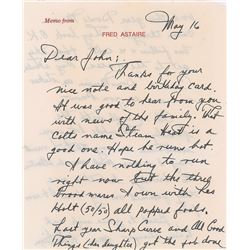 Memo from
FRED ASTAIRE
May 16
Dear John;
Thanks for your
nice note and birthday card.
It was good to hear from you
with news of the family. That
Colts name Steam Heat is a
good one. Hope he runs hot.
I have nothing to run
right now but the three
brood mares I own with has
Holt (50/50) all popped foals.
Last year Sharp Curve and All Good
Things (her daughter) got the job done